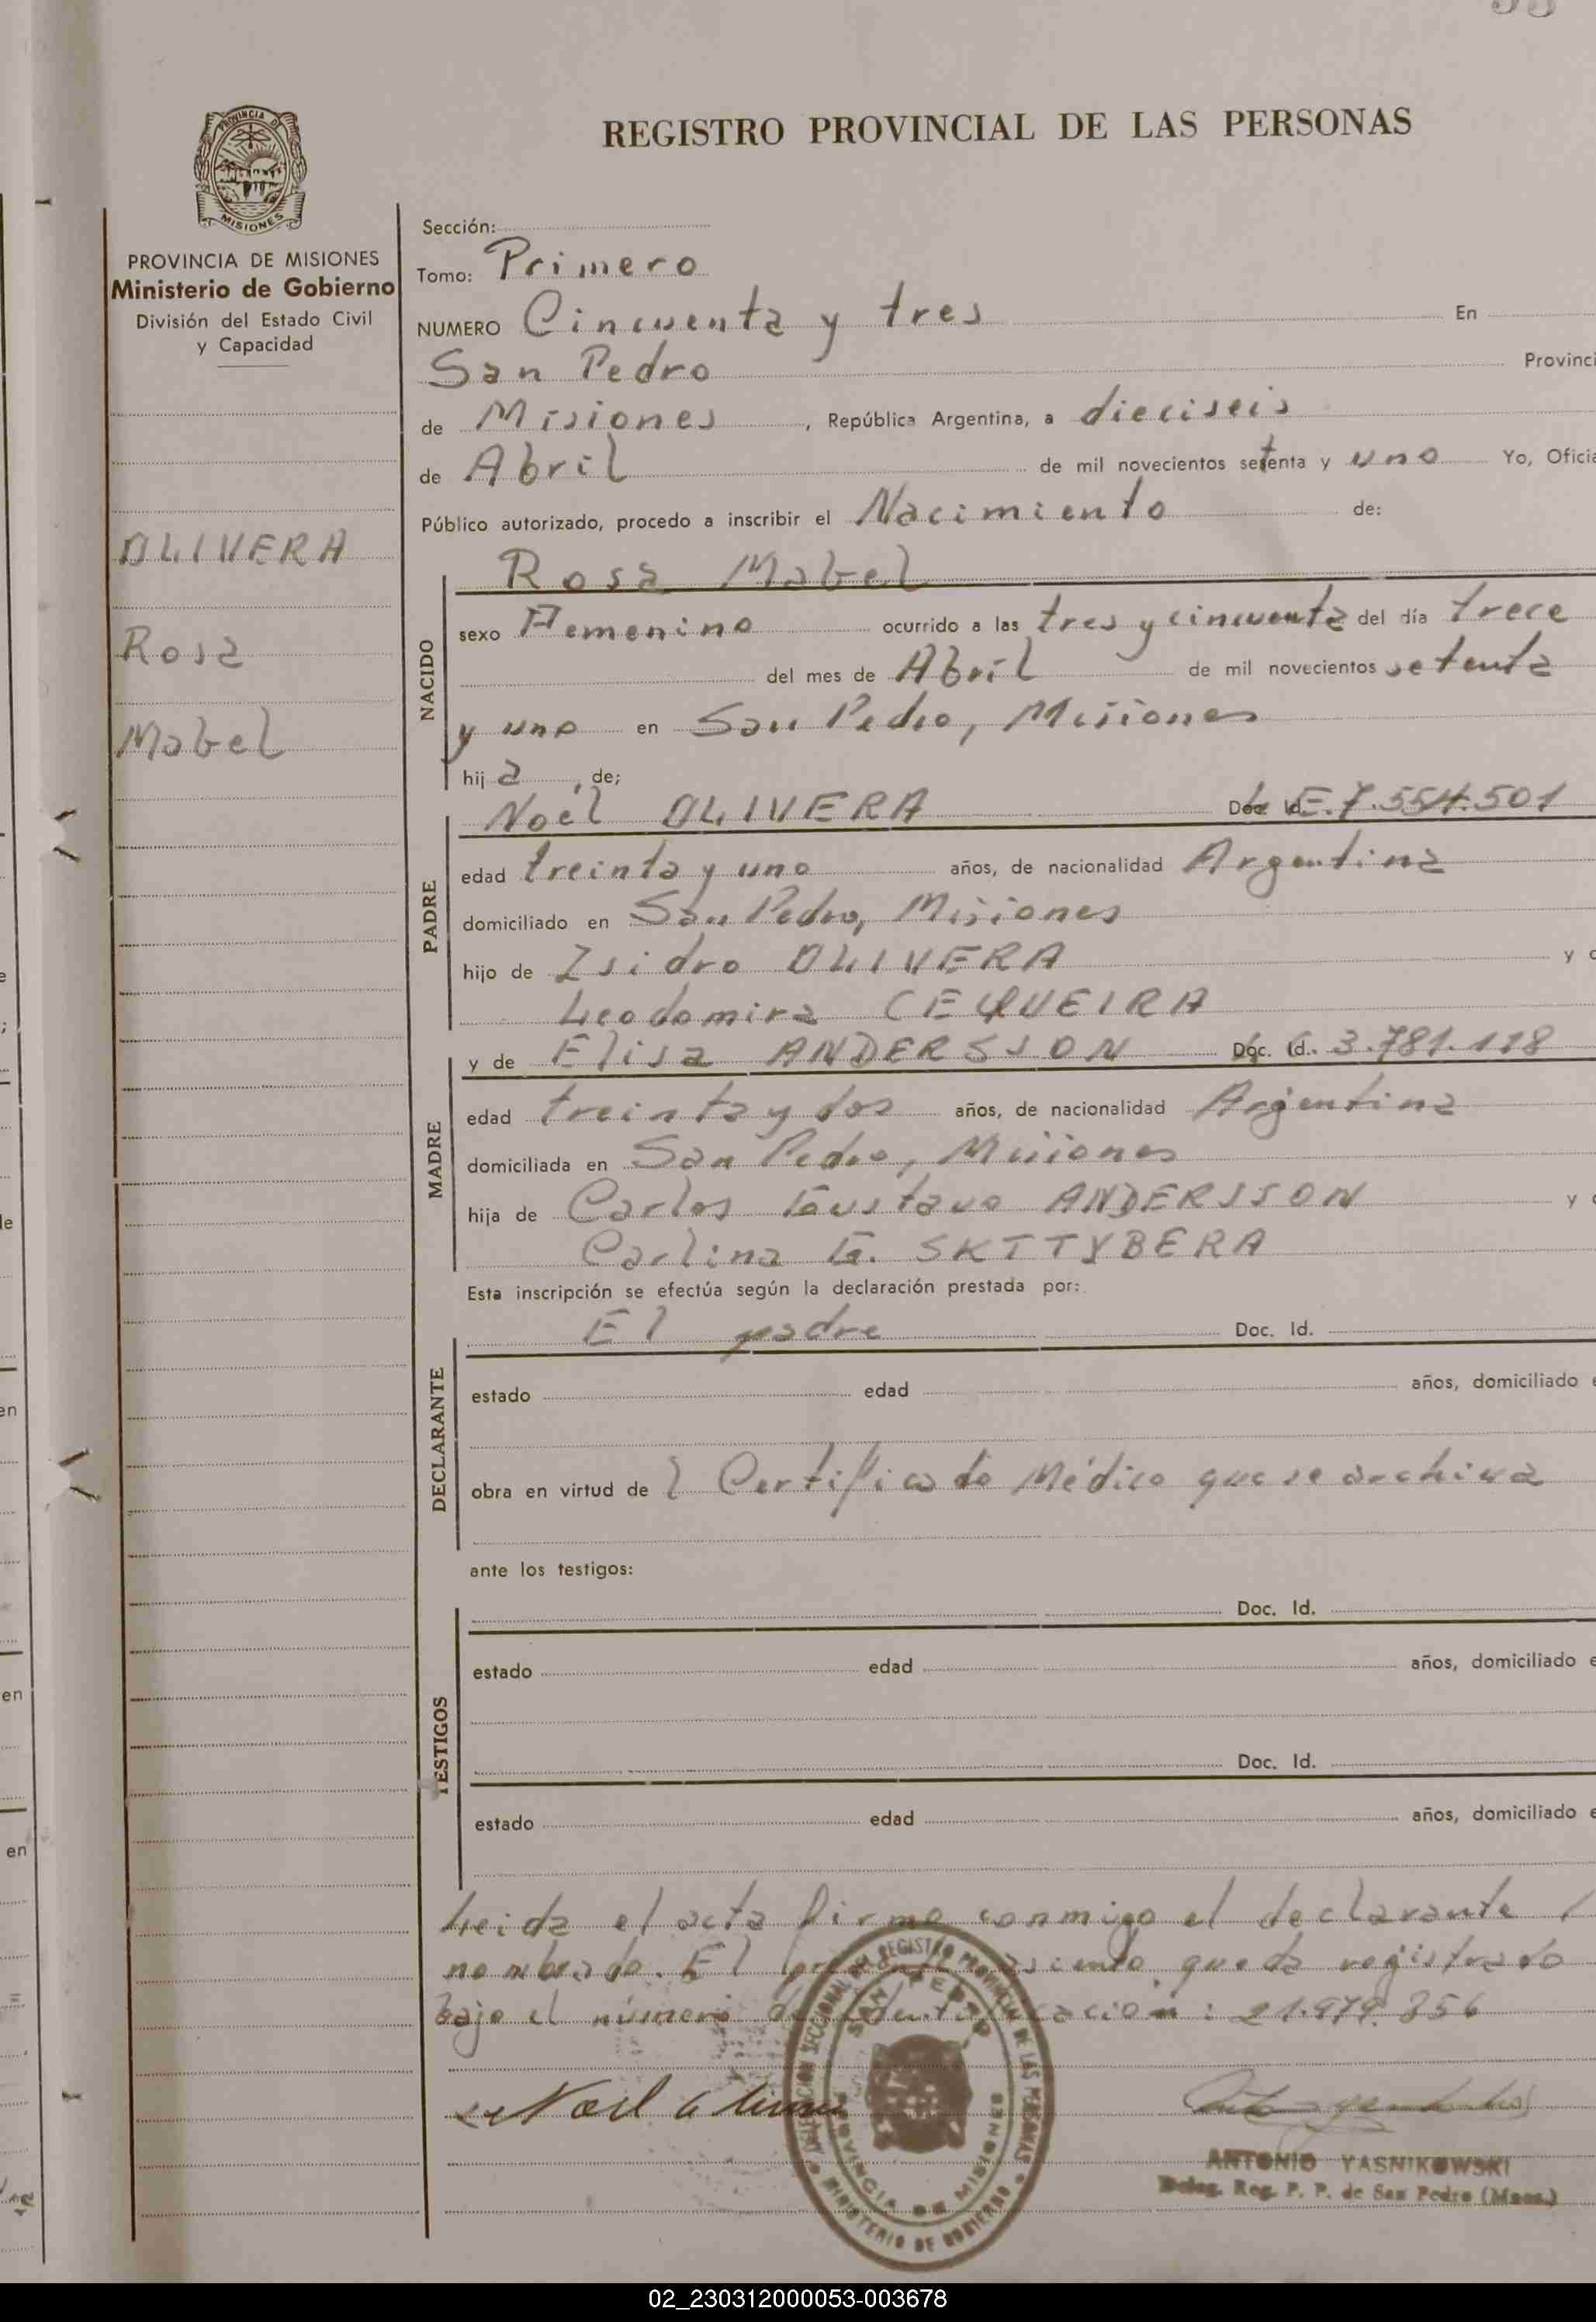 REGISTRO PROVINCIAL DE LAS PERSONAS
PROVINCIA DE
MISIONES
PROVINCIA DE MISIONES
Ministerio de Gobierno
División del Estado Civil
y Capacidad
OLIVERA
Rosa
Mabel
Sección:
Tomo: Primero
NUMERO Cincuenta y tres En
San Pedro Provinci
de Misiones, República Argentina, a dieciseis
de Abril de mil novecientos setenta y uno Yo, Oficia
Público autorizado, procedo a inscribir el Nacimiento de:
NACIDO
Rosa Mabel
sexo Femenino ocurrido a las tres y cincuenta del día trece
del mes de Abril de mil novecientos setenta
y uno en San Pedro, Misiones
hija, de;
PADRE
Noel OLIVERA L.E. 7.554.501
edad treinta y uno años, de nacionalidad Argentina
domiciliado en San Pedro, Misiones
hijo de Isidro OLIVERA y
Leodomira CEQUEIRA
MADRE
y de Elisa ANDERSSON Doc. Id. 3.781.118
edad treinta y dos años, de nacionalidad Argentina
domiciliada en San Pedro, Misiones
hija de Carlos Gustavo ANDERSSON y
Carlina G. SKTTYBERA
Esta inscripción se efectúa según la declaración prestada por:
DECLARANTE
El padre Doc. Id.
estado edad años, domiciliado e
obra en virtud de l Certificado Médico que se archiva
ante los testigos:
TESTIGOS
Doc. Id.
estado edad años, domiciliado e
Doc. Id.
estado edad años, domiciliado e
Leida el acta firma conmigo el declarante
nombrado. El queda registrado
bajo el número de identificación: 21.979.356
Noel
DELEGACION SECCIONAL DEL REGISTRO PROVINCIAL DE LAS PERSONAS
SAN PEDRO
PROVINCIA DE MISIONES
MINISTERIO DE GOBIERNO
ANTONIO YASNIKOWSKI
Deleg. Reg. P. P. de San Pedro (Mnes.)
02_230312000053-003678